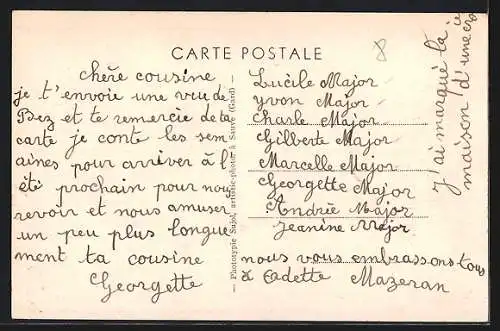 CARTE POSTALE
chère cousine
je t'envoie une vue de
Bez et te remercie de ta
carte je conte les sem
aines pour arriver à l'
été prochain pour nou
revoir et nous amuser
un peu plus longue
ment ta cousine
Georgette
— Phototypie Supol, artistic-photo, à Sauve (Gard) —
Lucile Major
Yvon Major
Charle Major
Gilberte Major
Marcelle Major
Georgette Major
Andrée Major
Jeanine Major
nous vous embrassons tous
à Odette Mazeran
J'ai marqué la
maison d'une